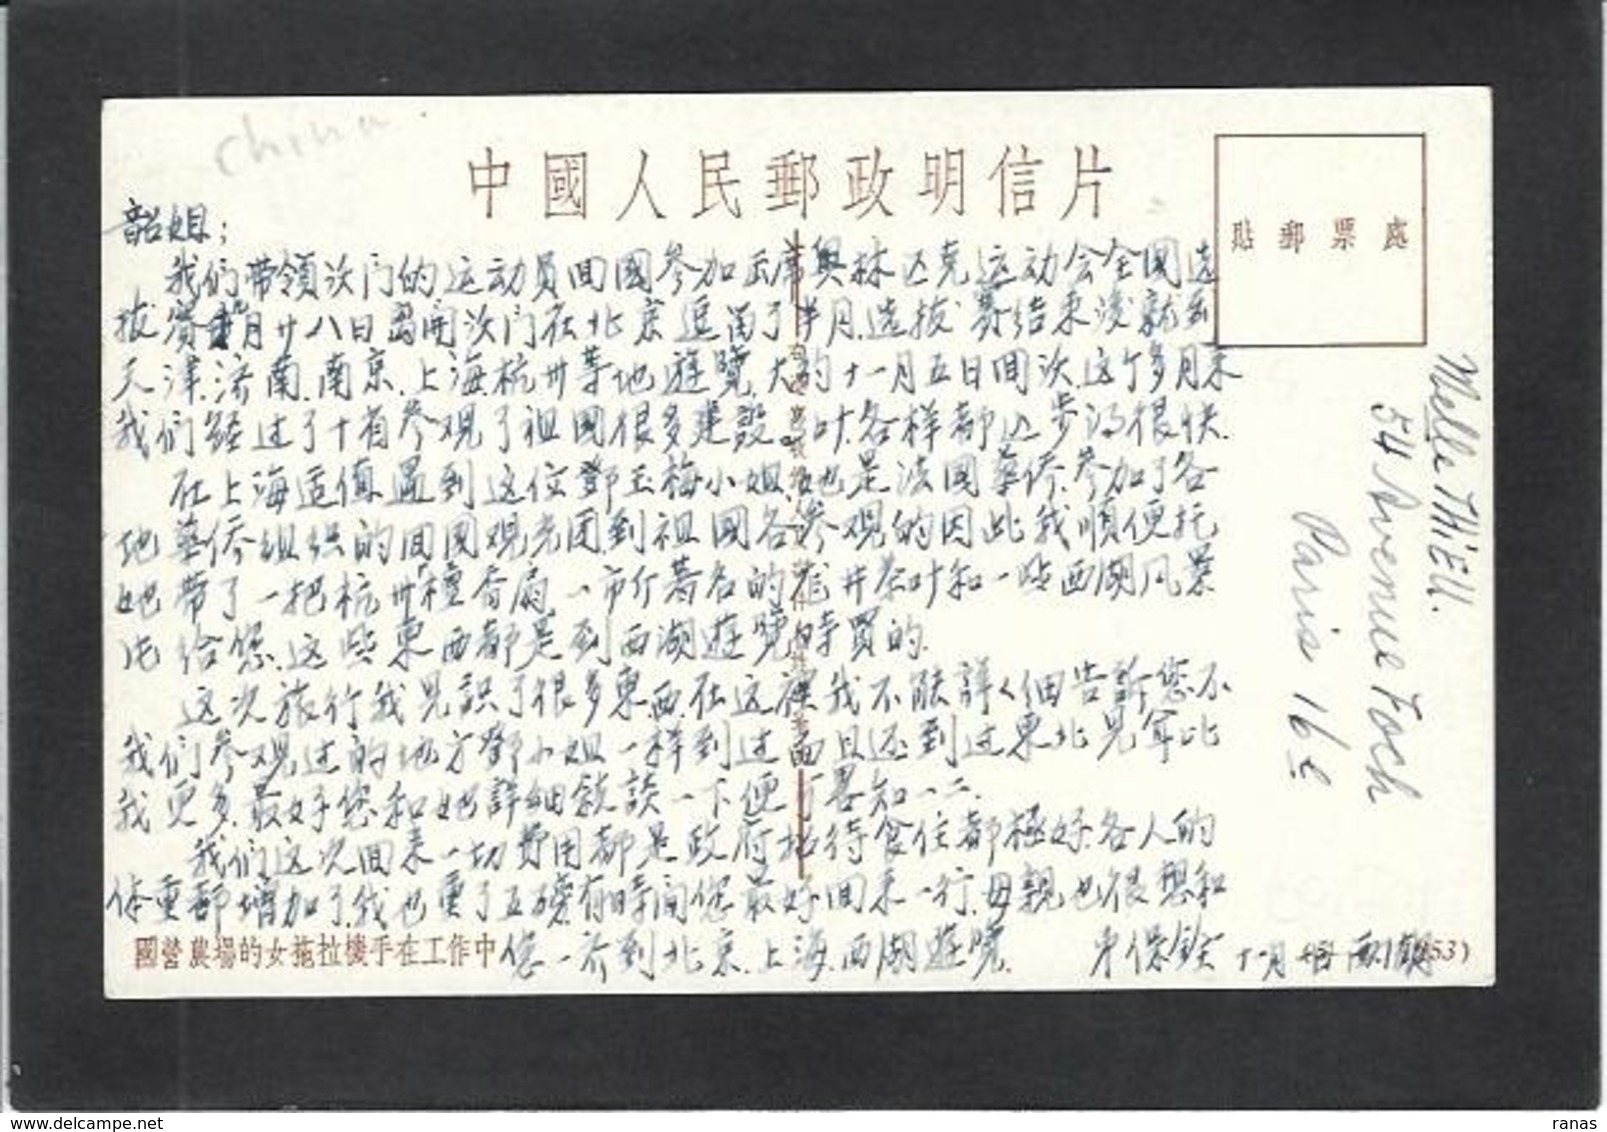 china
中國人民郵政明信片
貼郵票處
韶姐；
我们带領次门的运动员回國参加出席奥林匹克运动会全國选
拔賽九月廿八日离開次门在北京逗留了半月.选拔赛结束後就到
天津.济南.南京.上海.杭州等地遊覽.大約十一月五日回次.这个多月来
我们經过了十省参观了祖國很多建設.各样都进步得很快.
在上海适值遇到这位鄧玉梅小姐.她也是法國華侨.参加了各
地華侨组织的回國观光团到祖國各参观的因此我順便托
她带了一把杭州檀香扇.一市斤著名的龙井茶叶和一些西湖风景
片给您.这些東西都是到西湖遊覽時買的.
这次旅行我見識了很多東西.在这裡我不能詳細告訴您.不
我们参观过的地方鄧小姐一样到过.而且还到过東北.見實比
我更多.最好您和她詳細叙談一下便可畧知一二.
我们这次回来一切費用都是政府招待食住都極好.各人的
体重都增加了.我也重了五磅.有時间您最好回来一行.母親也很想和
您一齐到北京.上海.西湖遊覽.
保銓 十一月 西湖
國營農場的女拖拉機手在工作中
53)
Melle THiEU.
54 Avenue Foch
Paris 16 e
ranas